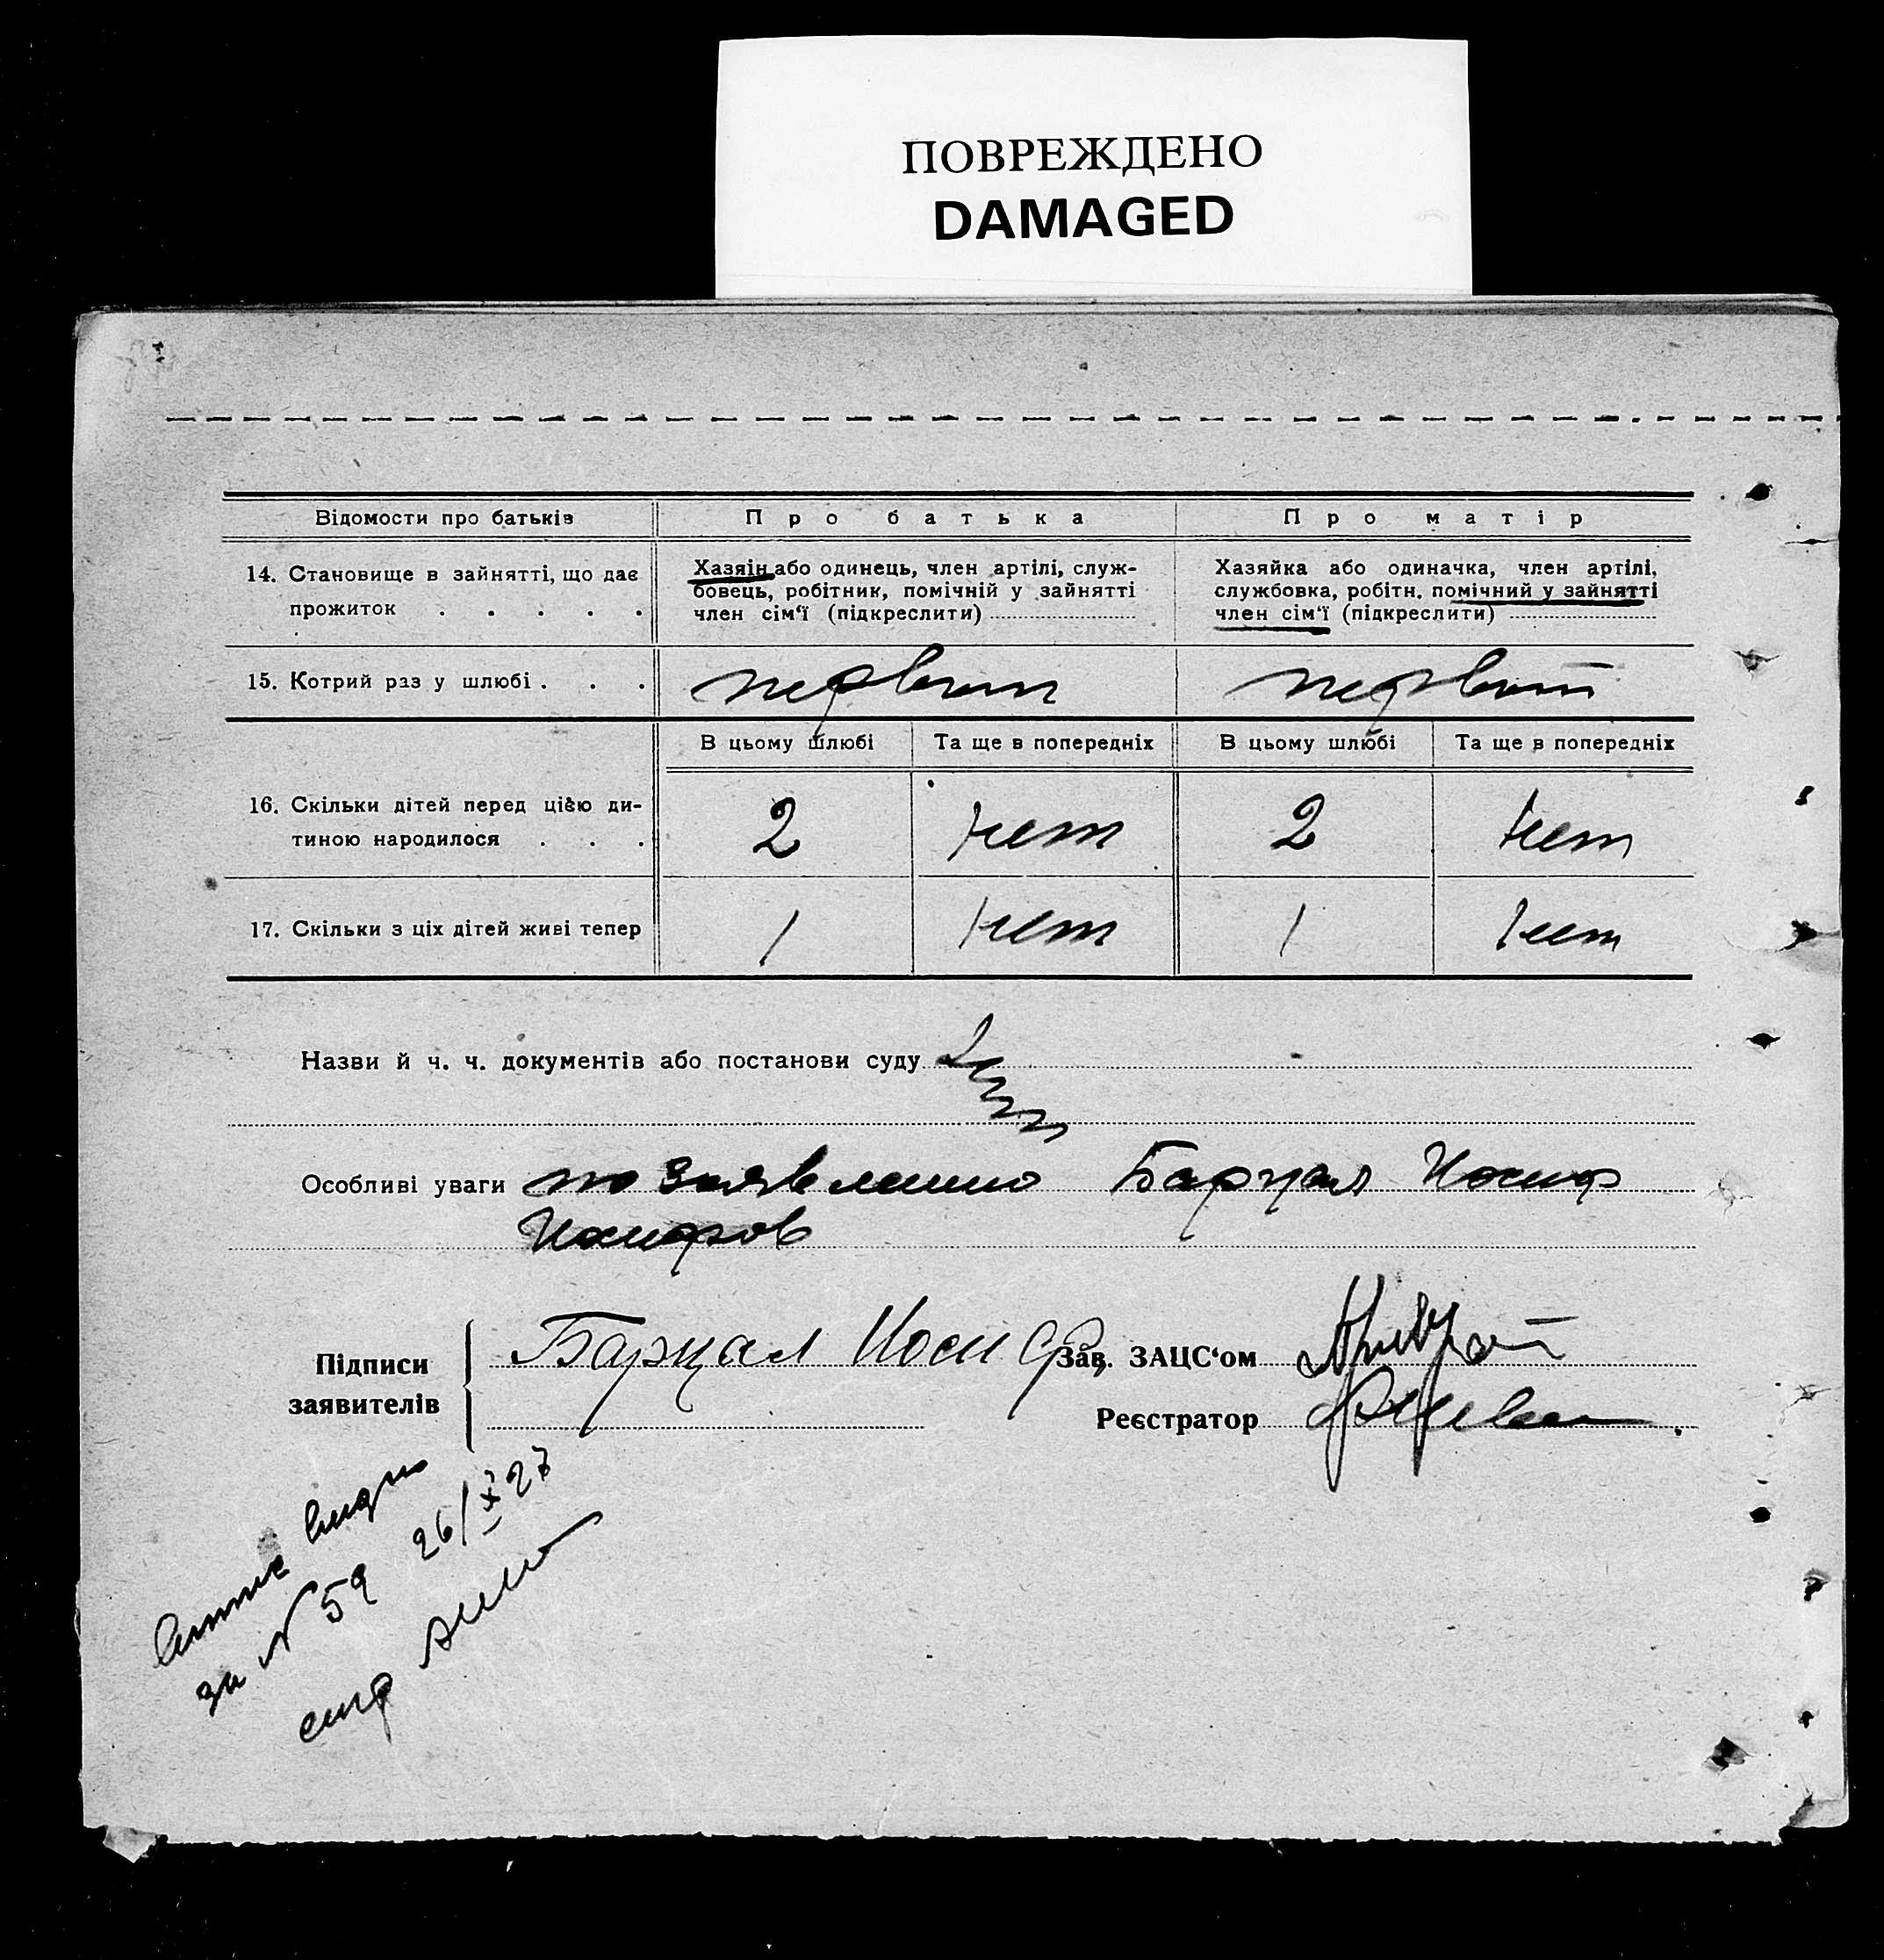 ПОВРЕЖДЕНО
DAMAGED
Відомости про батьків
Про батька
Про матір
14. Становище в зайнятті, що дає
прожиток . . . . .
Хазяін або одинець, член артілі, служ-
бовець, робітник, помічній у зайнятті
член сім'ї (підкреслити)
Хазяйка або одиначка, член артілі,
службовка, робітн. помічний у зайнятті
член сім'ї (підкреслити)
15. Котрий раз у шлюбі . . .
первый
первый
В цьому шлюбі
Та ще в попередніх
В цьому шлюбі
Та ще в попередніх
16. Скільки дітей перед цією ди-
тиною народилося . . .
2
нет
2
нет
17. Скільки з ціх дітей живі тепер
1
нет
1
нет
Назви й ч. ч. документів або постанови суду
Особливі уваги по заявлению Барцал Иосиф
Иосифов
Підписи
заявителів
Барцал Иосиф
Зав. ЗАЦС'ом
Реєстратор
видано
за № 59 26/X 27